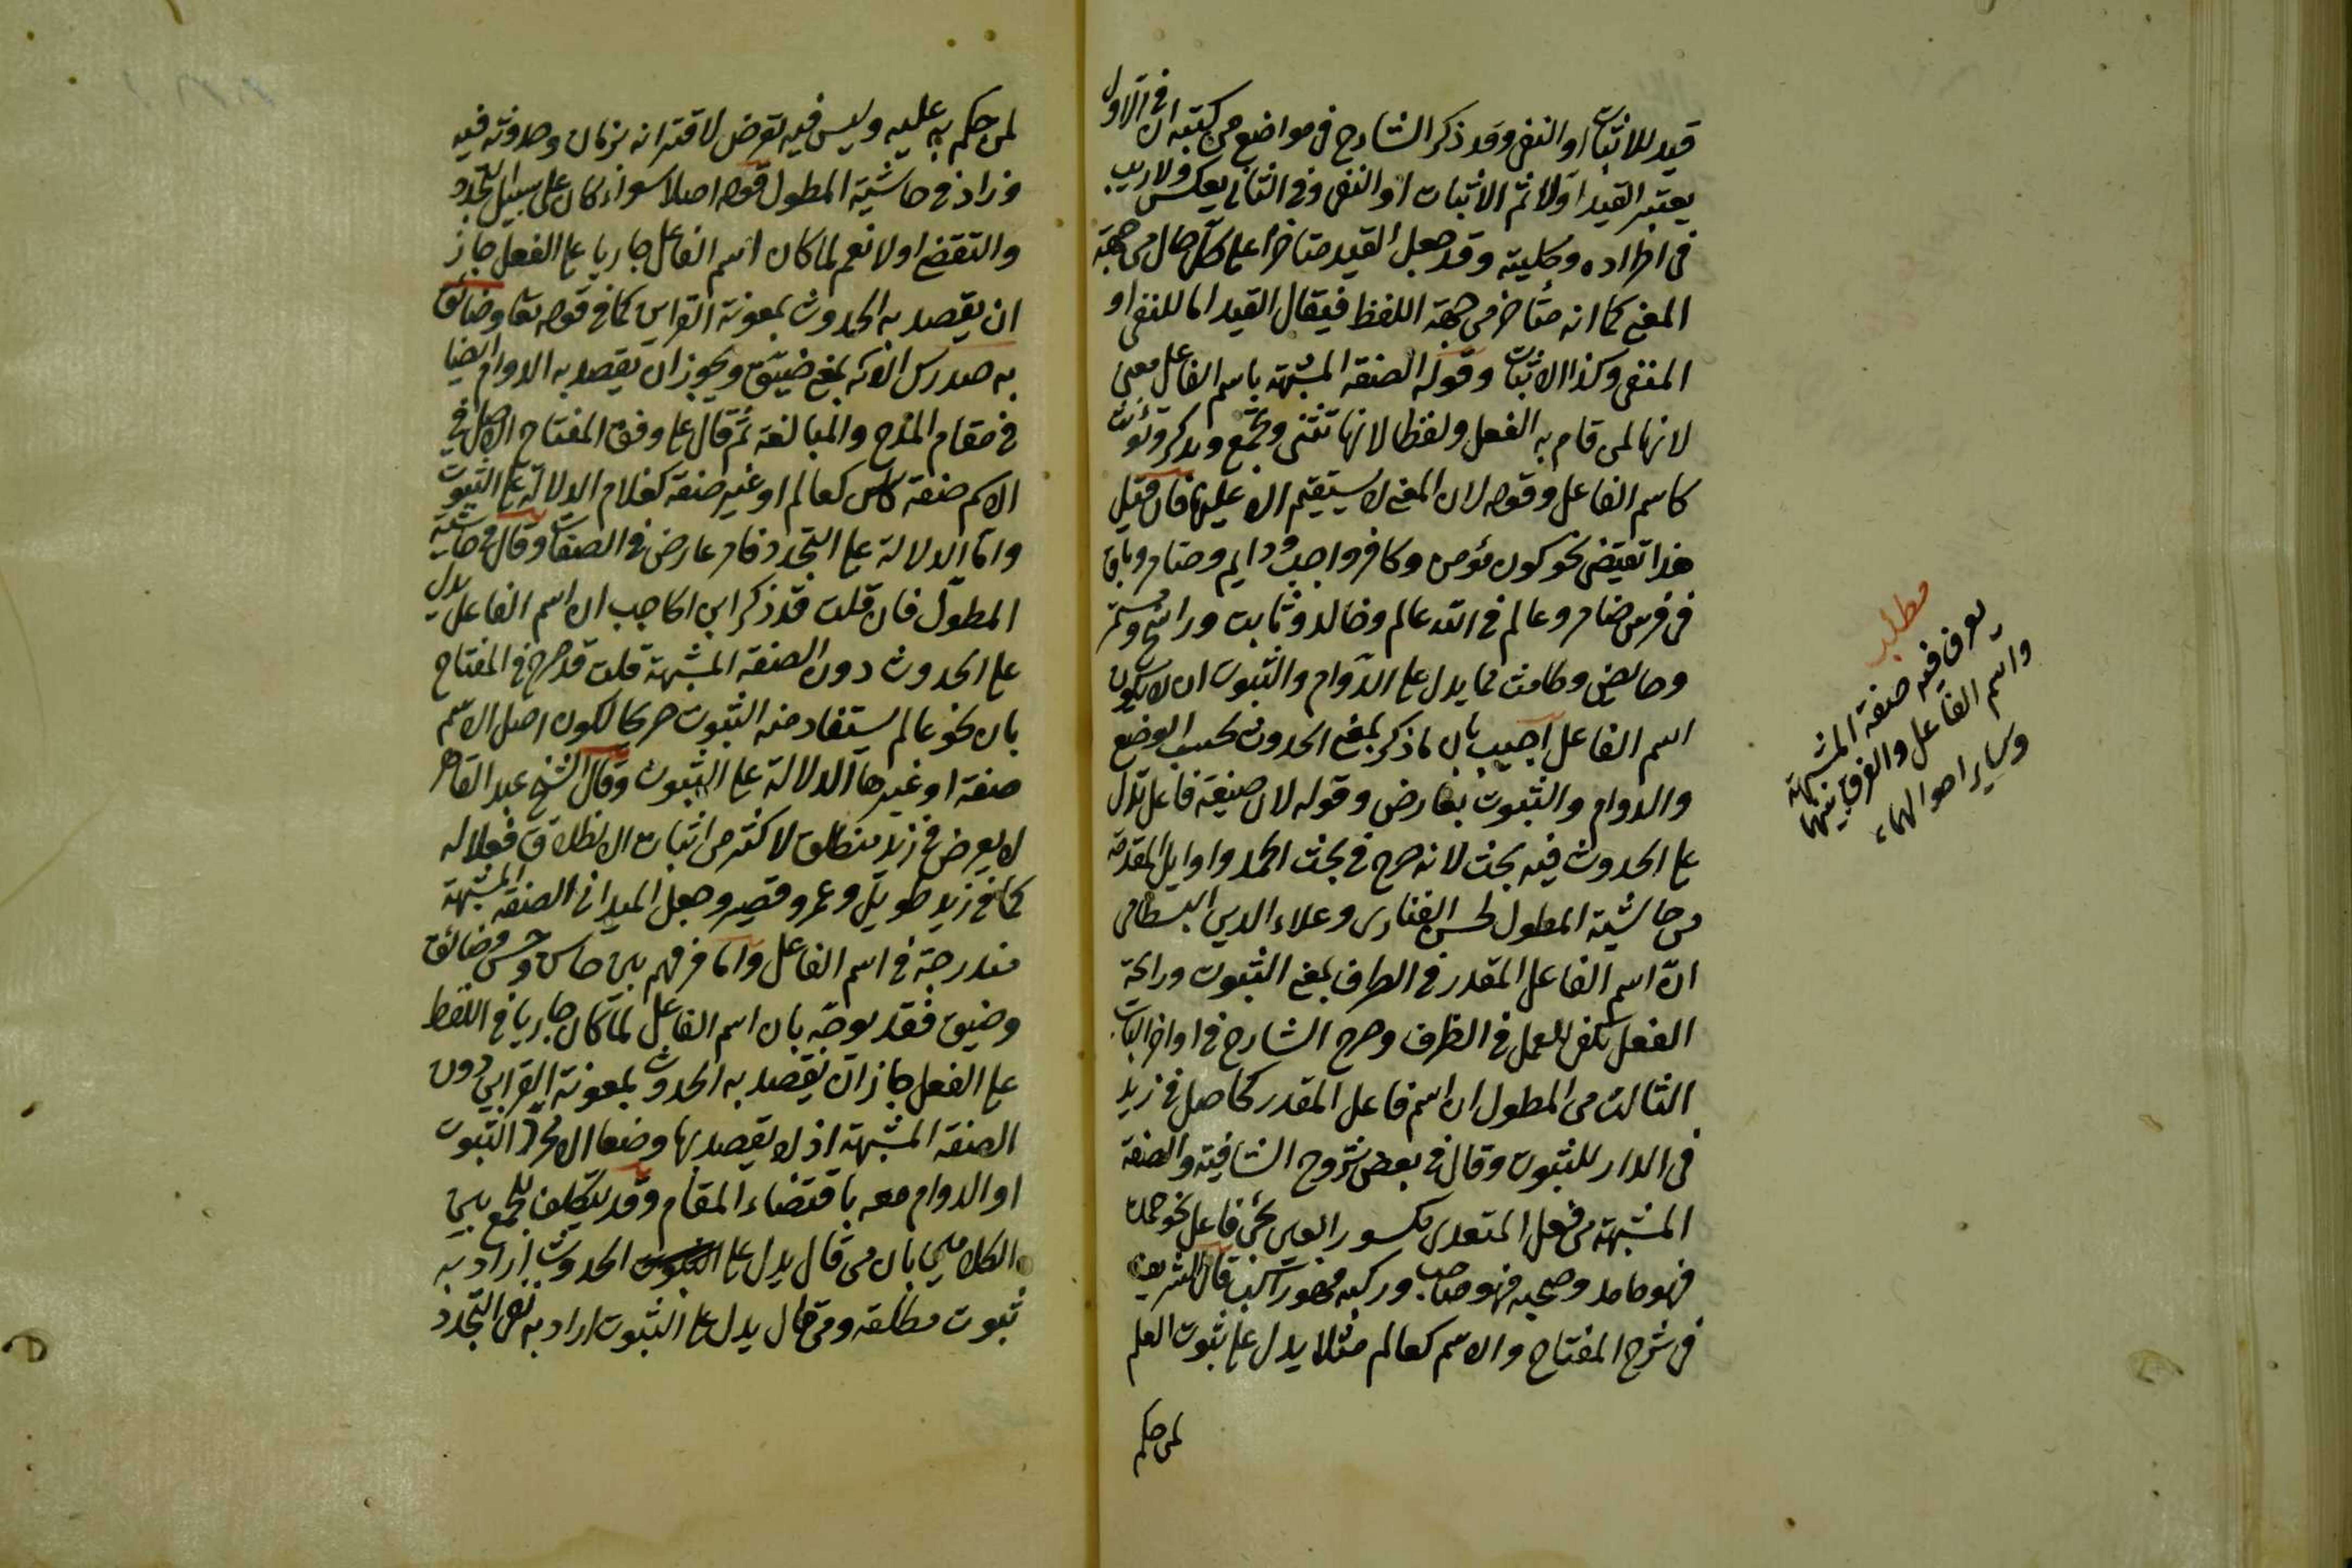 قيد للاثبات او النفى وقد ذكر الشارح فى مواضع من كتبه ان فى الاول
يعتبر القيد اولا ثم الاثبات او النفى وفى الثانى يعكس ولا ريب
فى اطراده وكليته وقد جعل القيد متاخرا على كل حال من جهة
المعنى كما انه متأخر من جهة اللفظ فيقال القيد اما للنفى او
المنفى وكذا الاثبات وقوله الصفة المشبهة باسم الفاعل معنى
لانها لمن قام به الفعل ولفظا لانها تثنى وتجمع وتذكر وتؤنث
كاسم الفاعل وقوله لان المعنى لا يستقيم الا عليها فان قيل
هذا تقتضى نحو كون مؤمن وكافر وواجب ودايم وضامر وباق
فى فرس ضامر وعالم فى الله عالم وخالد وثابت وراسخ ومستمر
وحايض وطامث مما يدل على الدوام والثبوت ان لا يكون
اسم الفاعل اجيب بان ما ذكر بمعنى الحدوث بحسب الوضع
والدوام والثبوت بعارض وقوله لان صيغة فاعل تدل
على الحدوث فيه بحث لانه صرح فى بحث الحمد واوايل المقدمة
من حاشية المطول لحسن الفنارى وعلاء الدين البسطامى
انّ اسم الفاعل المقدر فى الظرف بمعنى الثبوت ورائحة
الفعل تكفى للعمل فى الظرف وصرح الشارح فى اواخر الباب
الثالث من المطول ان اسم فاعل المقدر كحاصل فى زيد
فى الدار للثبوت وقال فى بعض شروح الشافية والصفة
المشبهة من فعل المتعدى مكسور العين تجئ فاعل نحو حمدت
فهو حامد وصحبه فهو صاحب وركبه فهو راكب قال الشريف
فى شرح المفتاح والاسم كعالم مثلا يدل على ثبوت العلم
لمن حكم
مطلب
يعرف فيه صفة المشبهة
واسم الفاعل والفرق بينهما
وساير احوالهما
لمن حكم به عليه وليس فيه تعرض لاقترانه بزمان وحدوثه فيه
وزاد فى حاشية المطول قوله اصلا سواء كان على سبيل التجدد
والتقضى اولا نعم لما كان اسم الفاعل جاريا على الفعل جاز
ان يقصد به الحدوث بمعونة القراين كما فى قوله تعا وضائق
به صدرك الاية بمعنى ضيّق ويجوز ان يقصد به الدوام ايضا
فى مقام المدح والمبالغة ثم قال على وفق المفتاح الاصل فى
الاسم صفة كان كعالم او غير صفة كغلام الدلالة على الثبوت
واما الدلالة على التجدد فامر عارض فى الصفات وقال فى حاشية
المطوّل فان قلت قد ذكر ابن الحاجب ان اسم الفاعل يدل
على الحدوث دون الصفة المشبهة قلت قد صرح فى المفتاح
بان نحو عالم يستفاد منه الثبوت صريحا لكون اصل الاسم
صفة او غيرها الدلالة على الثبوت وقال الشيخ عبد القاهر
لا يعرض فى زيد منطلق لاكثر من اثبات الانطلاق فعلا له
كما فى زيد طويل وعمرو قصير وجعل الميدانى الصفة المشبهة
مندرجة فى اسم الفاعل واما فرقهم بين حاسن وحسن وضائق
وضيق فقد يوجّه بان اسم الفاعل لما كان جاريا فى اللفظ
على الفعل جاز ان يقصد به الحدوث بمعونة القراين دون
الصفة المشبهة اذ لا يقصد بها وضعا الا مجرد الثبوت
او الدوام معه باقتضاء المقام وقد يتكلف للجمع بين
الكلامين بان من قال يدل على الحدوث اراد به
ثبوت مطلقه ومن قال يدل على الثبوت اراد به نفى التجدد